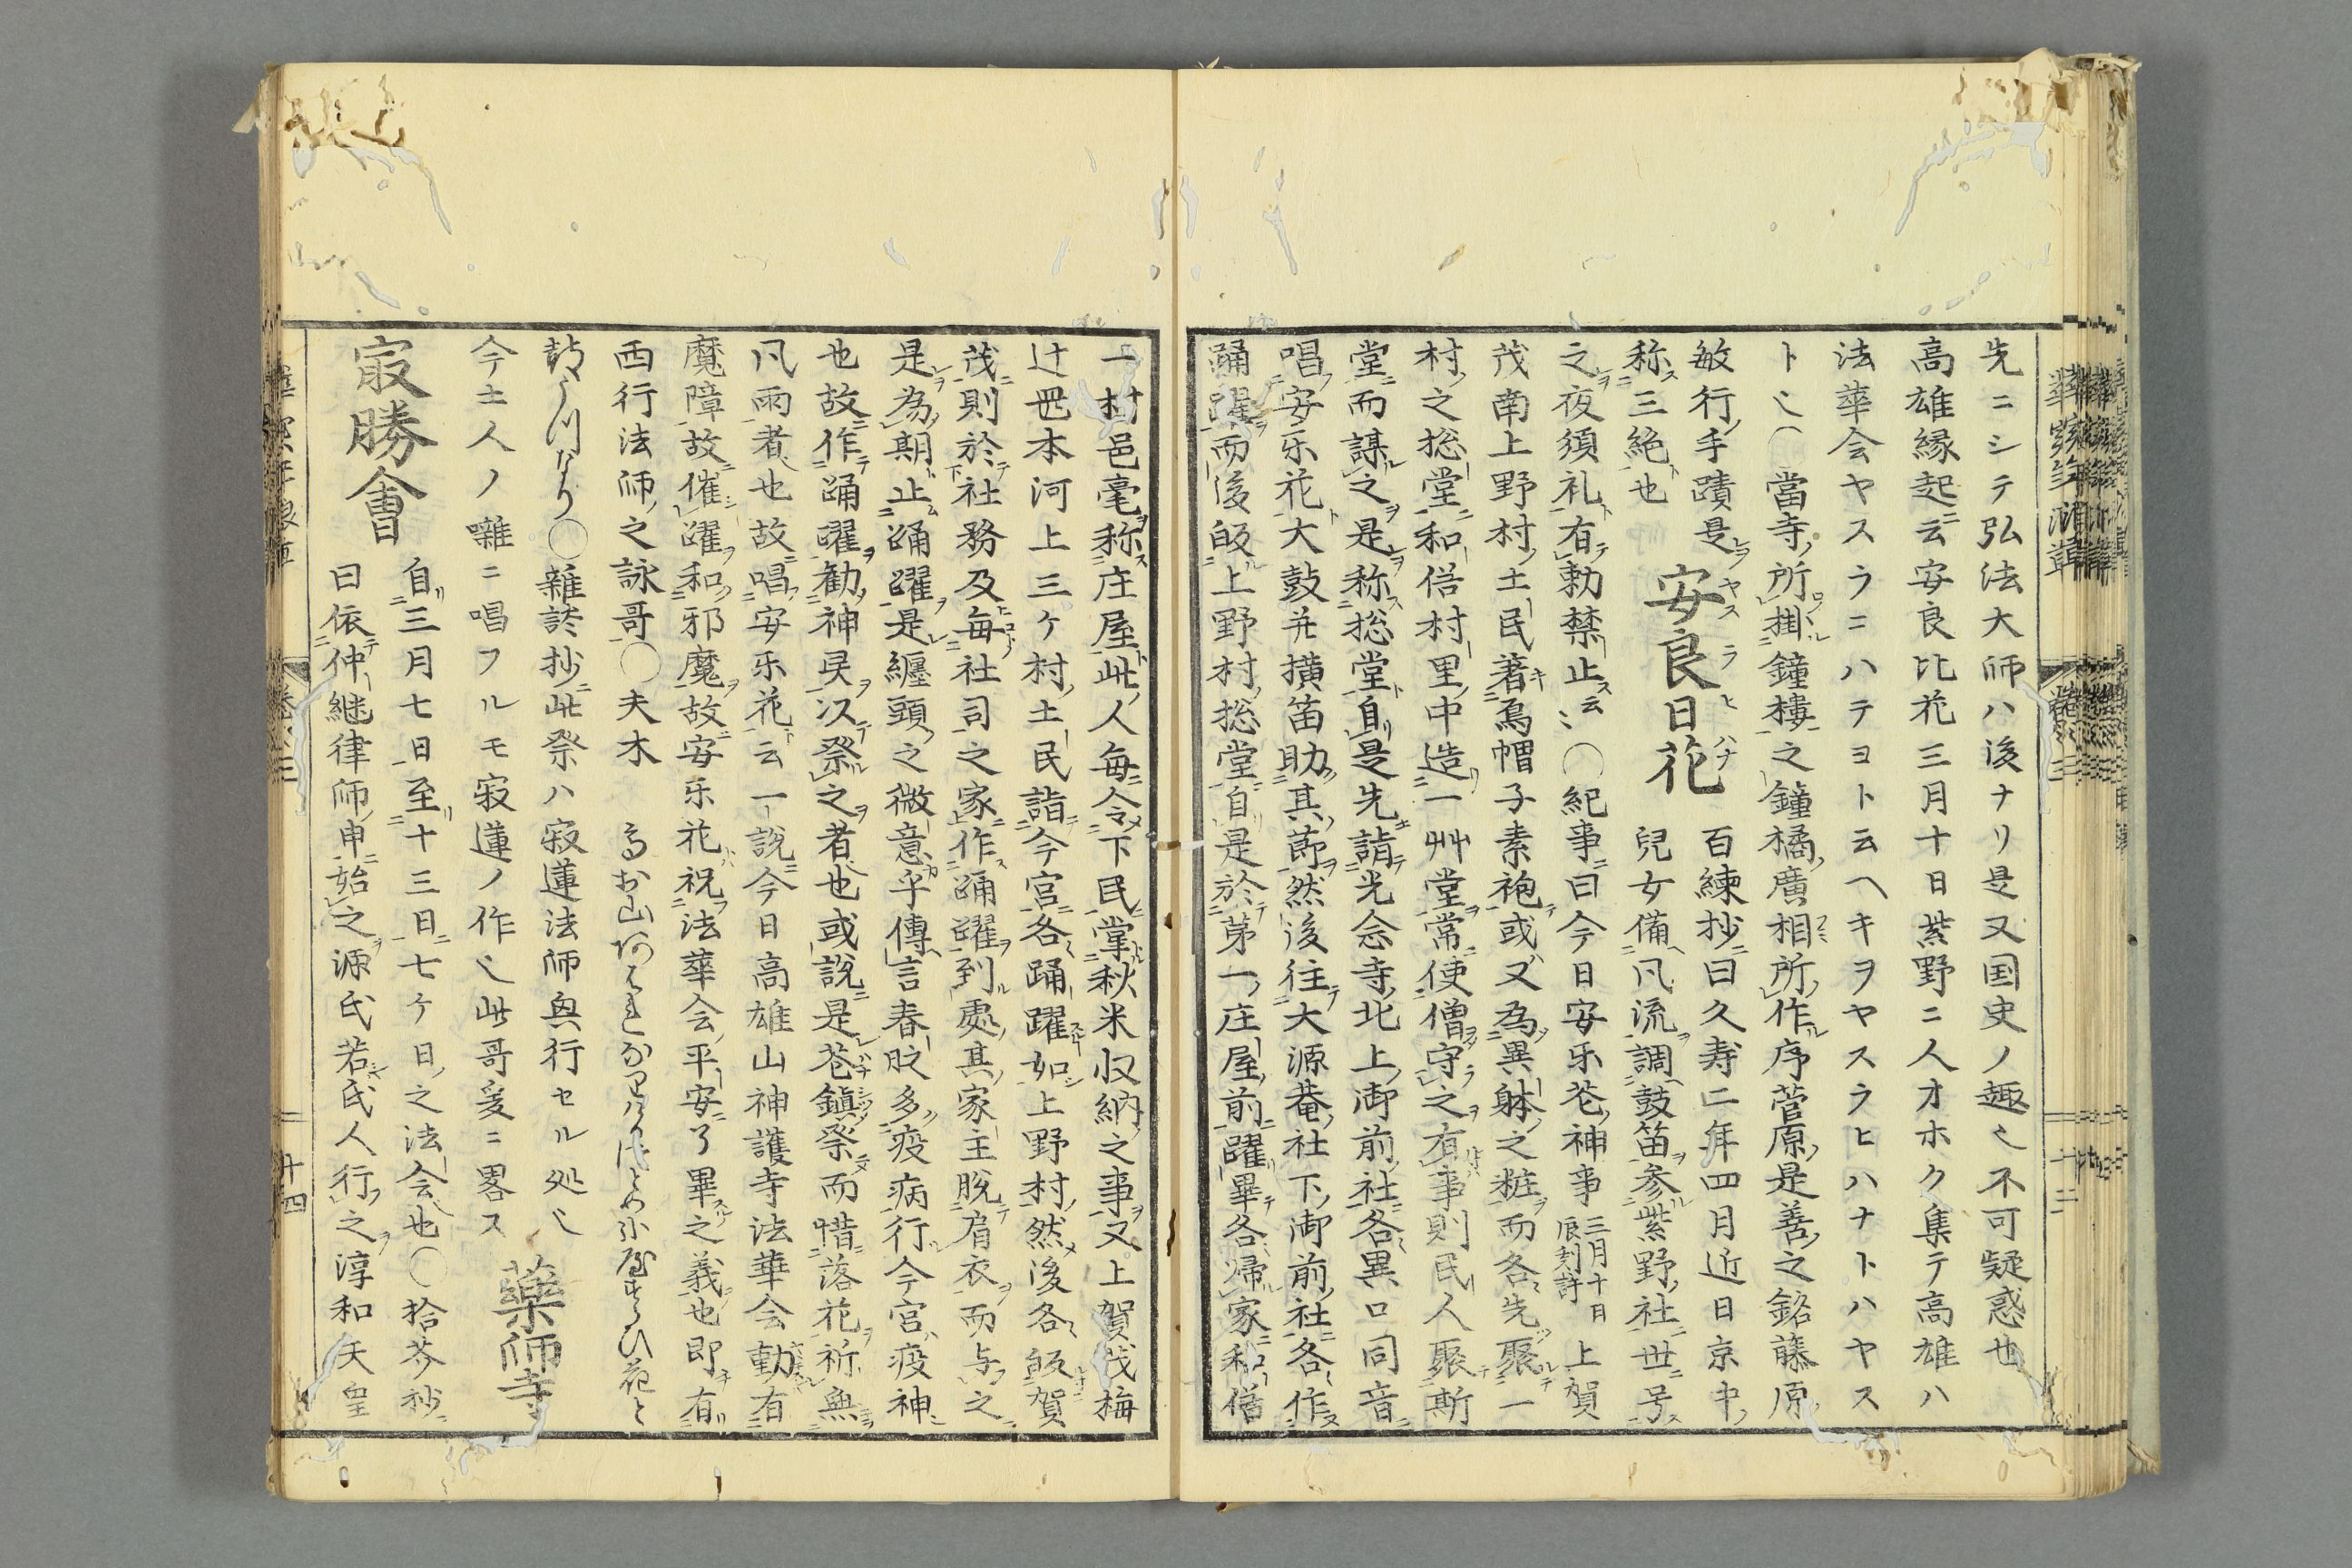 先ニシテ弘法大師ハ後ナリ是又国史ノ趣也不可疑惑也
高雄縁起ニ云安良比花三月十日紫野ニ人オホク集テ高雄ハ
法華会ヤスラニハテヨト云ヘキヲヤスラヒハナトハヤス
ト也 當寺ノ所掛鐘樓之鐘橘廣相所作序菅原是善之銘藤原
敏行手蹟是
称三絶也
安良日花
百練抄ニ曰久寿二年四月近日京中
兒女備凡流調鼓笛参紫野社世号
之夜須礼有勅禁止云〻〇紀事ニ曰今日安乐花神事三月十日辰刻許上賀
茂南上野村土民著烏帽子素袍或又為異躰之粧而各先聚一
村之惣堂和俗村里中造一艸堂常使僧守之有事則民人聚斯
堂而謀之是称惣堂自是先詣光念寺北上御前社各異口同音
唱安乐花大鼓并横笛助其節然後往大源菴社下御前社各作
踊躍而後皈上野村惣堂自是於第一庄屋前躍畢各帰家和俗
一村邑毫称庄屋此人毎令下民掌秋米収納之事又上賀茂梅
辻毘本河上三ケ村土民詣今宮各踊躍如上野村然後各皈賀
茂則於社務及毎社司之家作踊躍到處其家主脱肩衣而与之
是為期止踊躍是纏頭之微意乎傳言春肢多疫病行今宮疫神
也故作踊躍勧神灵以祭之者也或説是花鎮祭而惜落花祈無
凡雨者也故唱安乐花云一説今日高雄山神護寺法華会動有
魔障故催躍和邪魔故安乐花祝法華会平安了畢之義也即有
西行法師之詠哥〇夫木
鼓うつなり〇雜談抄ニ此祭ハ寂蓮法師興行セル処也
今土人ノ囃ニ唱フルモ寂蓮ノ作也此哥爰ニ畧ス
藥師寺
㝡勝會
自三月七日至十三日七ケ日之法会也〇拾芥抄
曰依仲継律師申始之源氏若氏人行之淳和天皇
十四